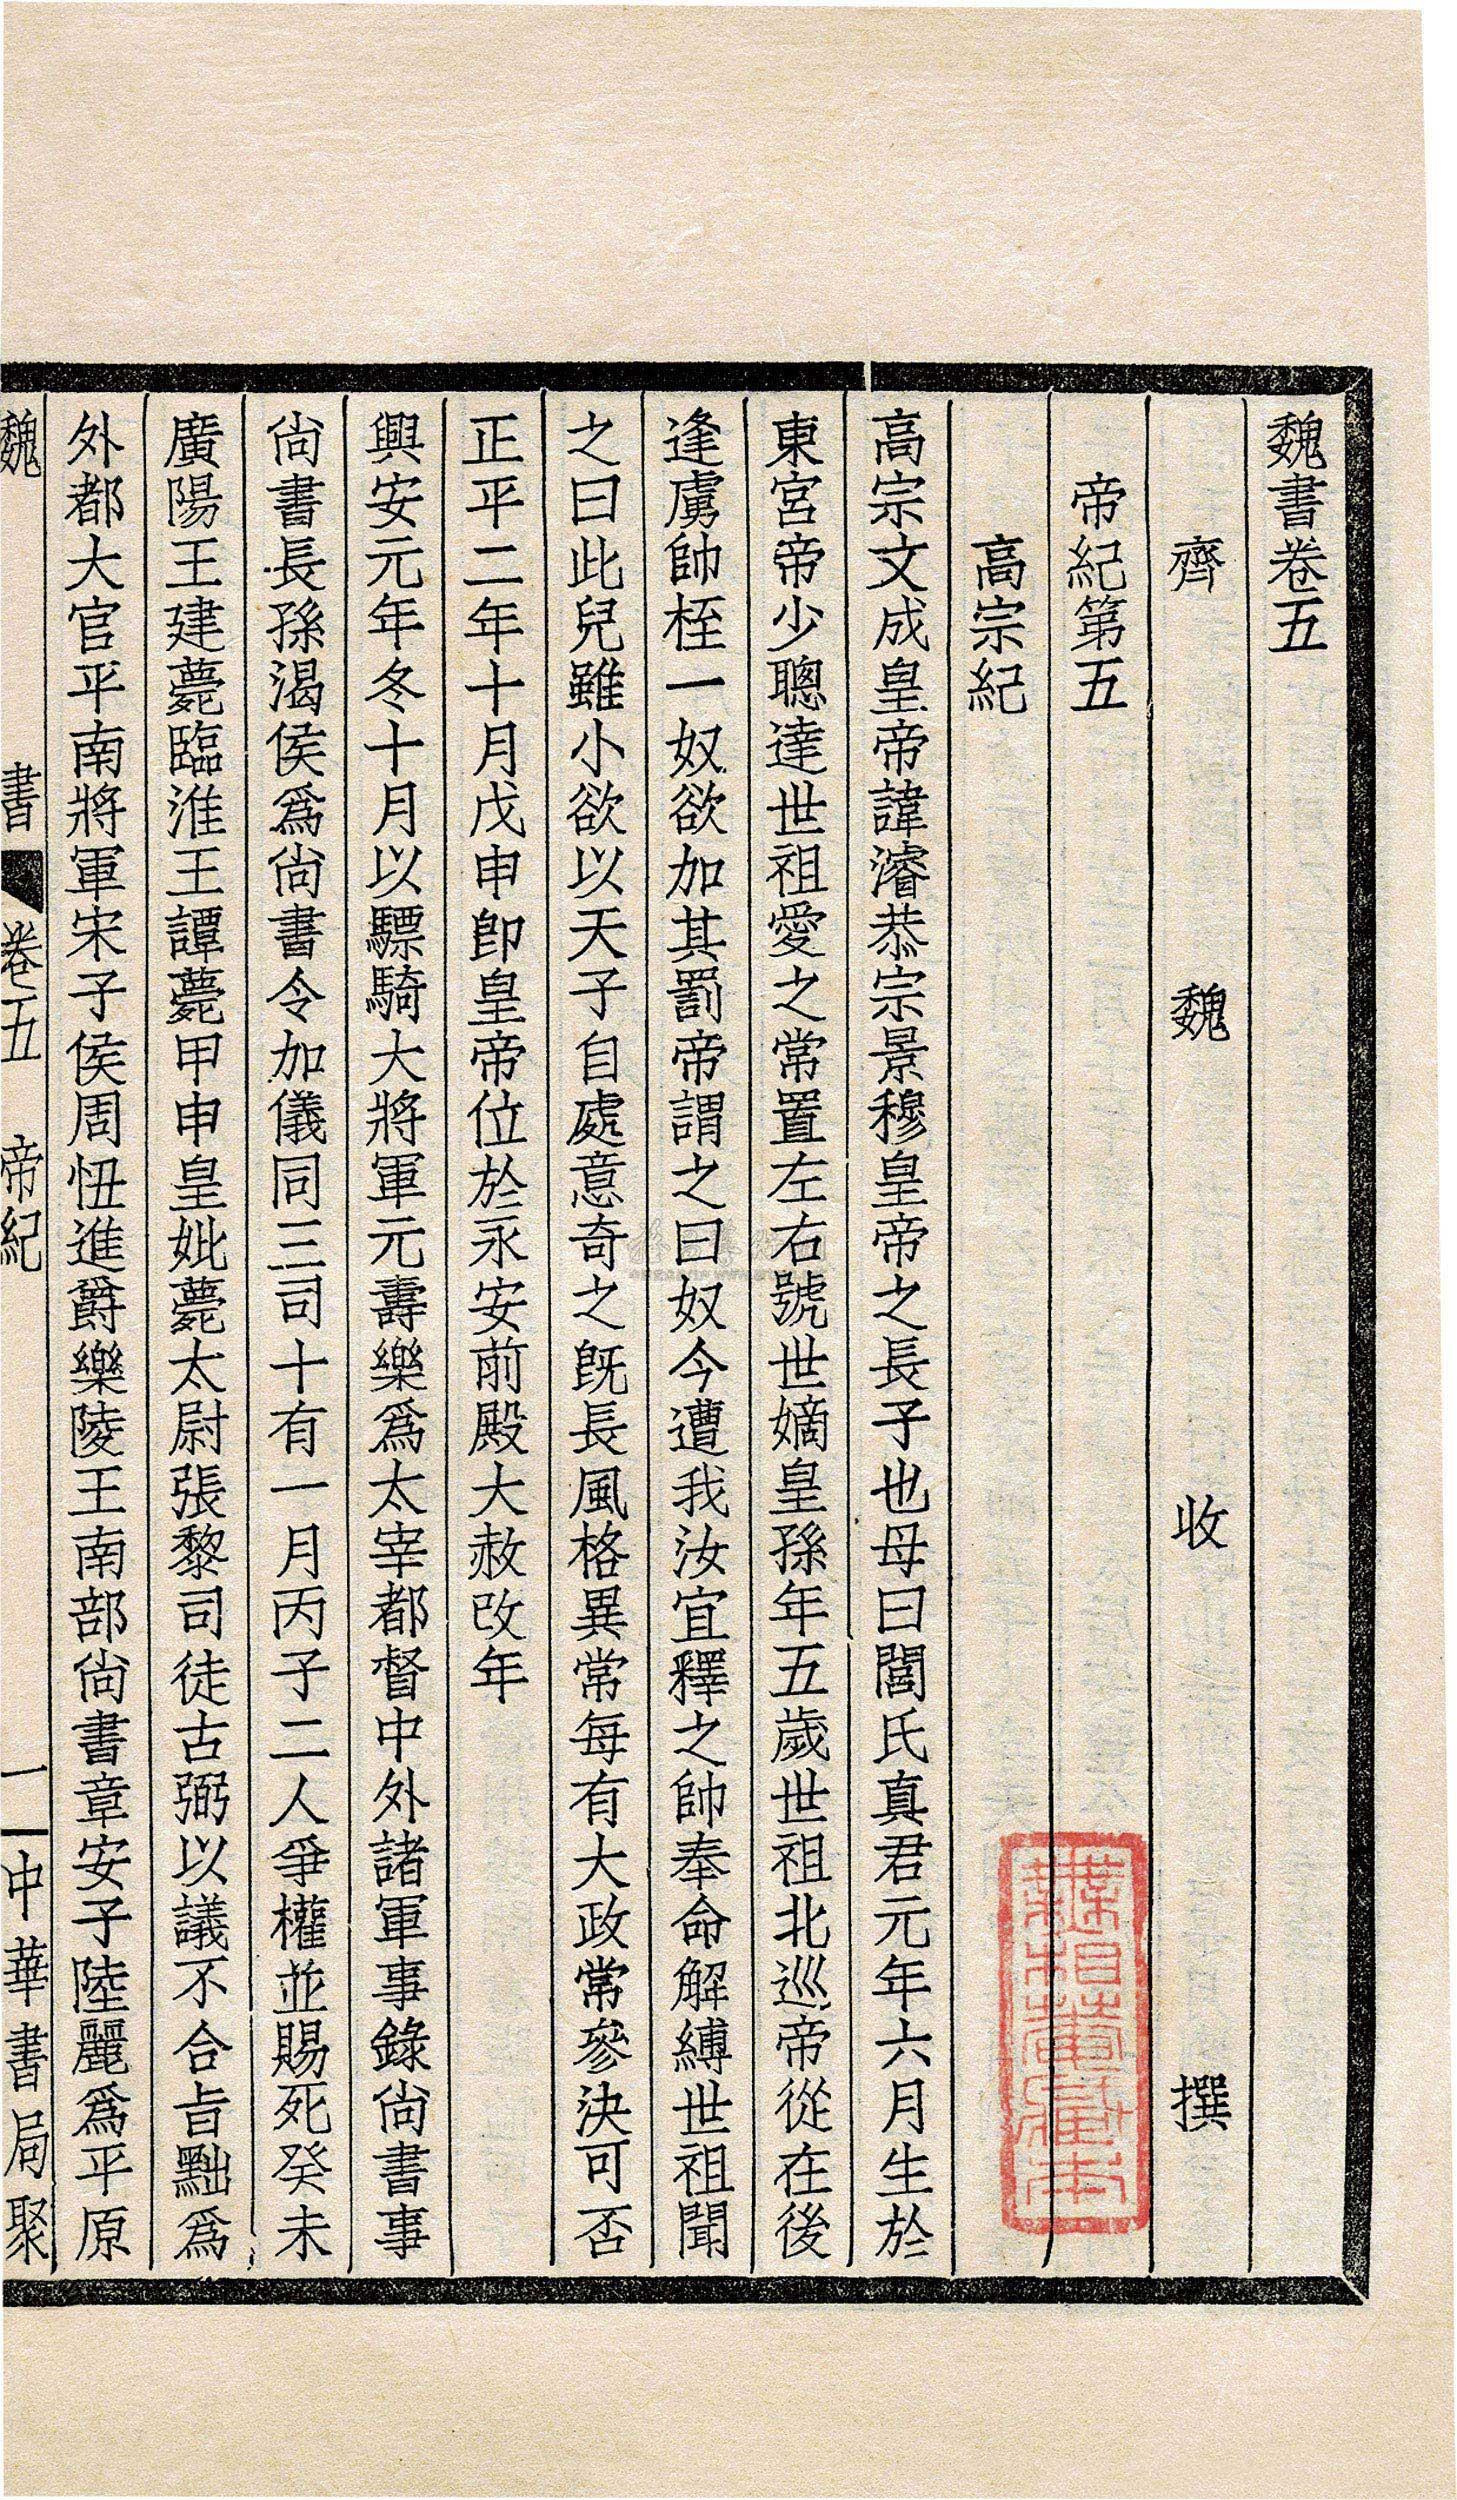 魏書卷五
齊 魏 收 撰
帝紀第五
高宗紀
高宗文成皇帝諱濬恭宗景穆皇帝之長子也母曰閭氏真君元年六月生於
東宮帝少聰達世祖愛之常置左右號世嫡皇孫年五歲世祖北巡帝從在後
逢虜帥桎一奴欲加其罰帝謂之曰奴今遭我汝宜釋之帥奉命解縛世祖聞
之曰此兒雖小欲以天子自處意奇之既長風格異常每有大政常參決可否
正平二年十月戊申即皇帝位於永安前殿大赦改年
興安元年冬十月以驃騎大將軍元壽樂爲太宰都督中外諸軍事錄尚書事
尚書長孫渴侯爲尚書令加儀同三司十有一月丙子二人爭權並賜死癸未
廣陽王建薨臨淮王譚薨甲申皇妣薨太尉張黎司徒古弼以議不合旨黜爲
外都大官平南將軍宋子侯周忸進爵樂陵王南部尚書章安子陸麗爲平原
魏書 卷五 帝紀 一 中華書局聚